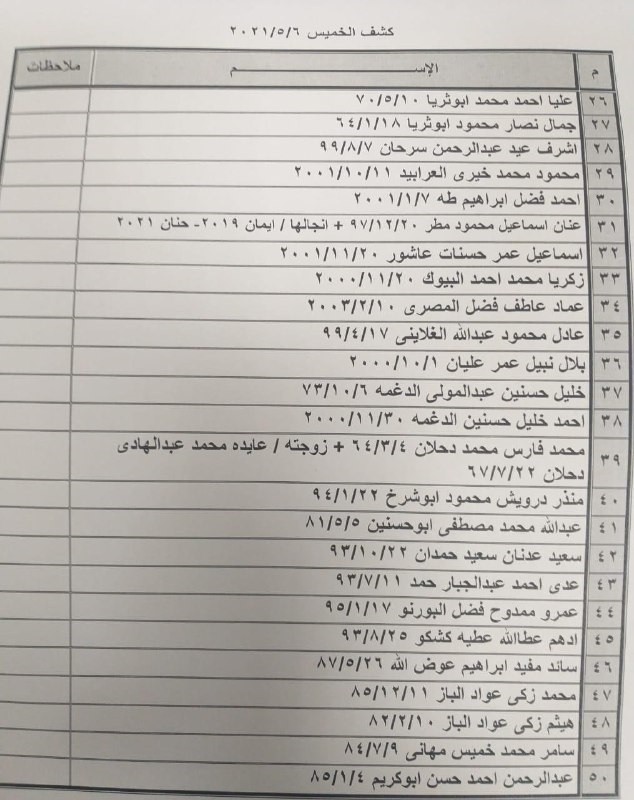 كشف الخميس ٢٠٢١/٥/٦
م الإســـــــــــــــم ملاحظات
٢٦ عليا احمد محمد ابوثريا ٧٠/٥/١٠
٢٧ جمال نصار محمود ابوثريا ٦٤/١/١٨
٢٨ اشرف عيد عبدالرحمن سرحان ٩٩/٨/٧
٢٩ محمود محمد خيرى العرابيد ٢٠٠١/١٠/١١
٣٠ احمد فضل ابراهيم طه ٢٠٠١/١/٧
٣١ عنان اسماعيل محمود مطر ٩٧/١٢/٢٠ + انجالها / ايمان ٢٠١٩- حنان ٢٠٢١
٣٢ اسماعيل عمر حسنات عاشور ٢٠٠١/١١/٢٠
٣٣ زكريا محمد احمد البيوك ٢٠٠٠/١١/٢٠
٣٤ عماد عاطف فضل المصرى ٢٠٠٣/٢/١٠
٣٥ عادل محمود عبدالله الغلاينى ٩٩/٤/١٧
٣٦ بلال نبيل عمر عليان ٢٠٠٠/١٠/١
٣٧ خليل حسنين عبدالمولى الدغمه ٧٣/١٠/٦
٣٨ احمد خليل حسنين الدغمه ٢٠٠٠/١١/٣٠
٣٩ محمد فارس محمد دحلان ٦٤/٣/٤ + زوجته / عايده محمد عبدالهادى
دحلان ٦٧/٧/٢٢
٤٠ منذر درويش محمود ابوشرخ ٩٤/١/٢٢
٤١ عبدالله محمد مصطفى ابوحسنين ٨١/٥/٥
٤٢ سعيد عدنان سعيد حمدان ٩٣/١٠/٢٢
٤٣ عدى احمد عبدالجبار حمد ٩٣/٧/١١
٤٤ عمرو ممدوح فضل البورنو ٩٥/١/١٧
٤٥ ادهم عطاالله عطيه كشكو ٩٣/٨/٢٥
٤٦ سائد مفيد ابراهيم عوض الله ٨٧/٥/٢٦
٤٧ محمد زكى عواد الباز ٨٥/١٢/١١
٤٨ هيثم زكى عواد الباز ٨٢/٢/١٠
٤٩ سامر محمد خميس مهانى ٨٤/٧/٩
٥٠ عبدالرحمن احمد حسن ابوكريم ٨٥/١/٤